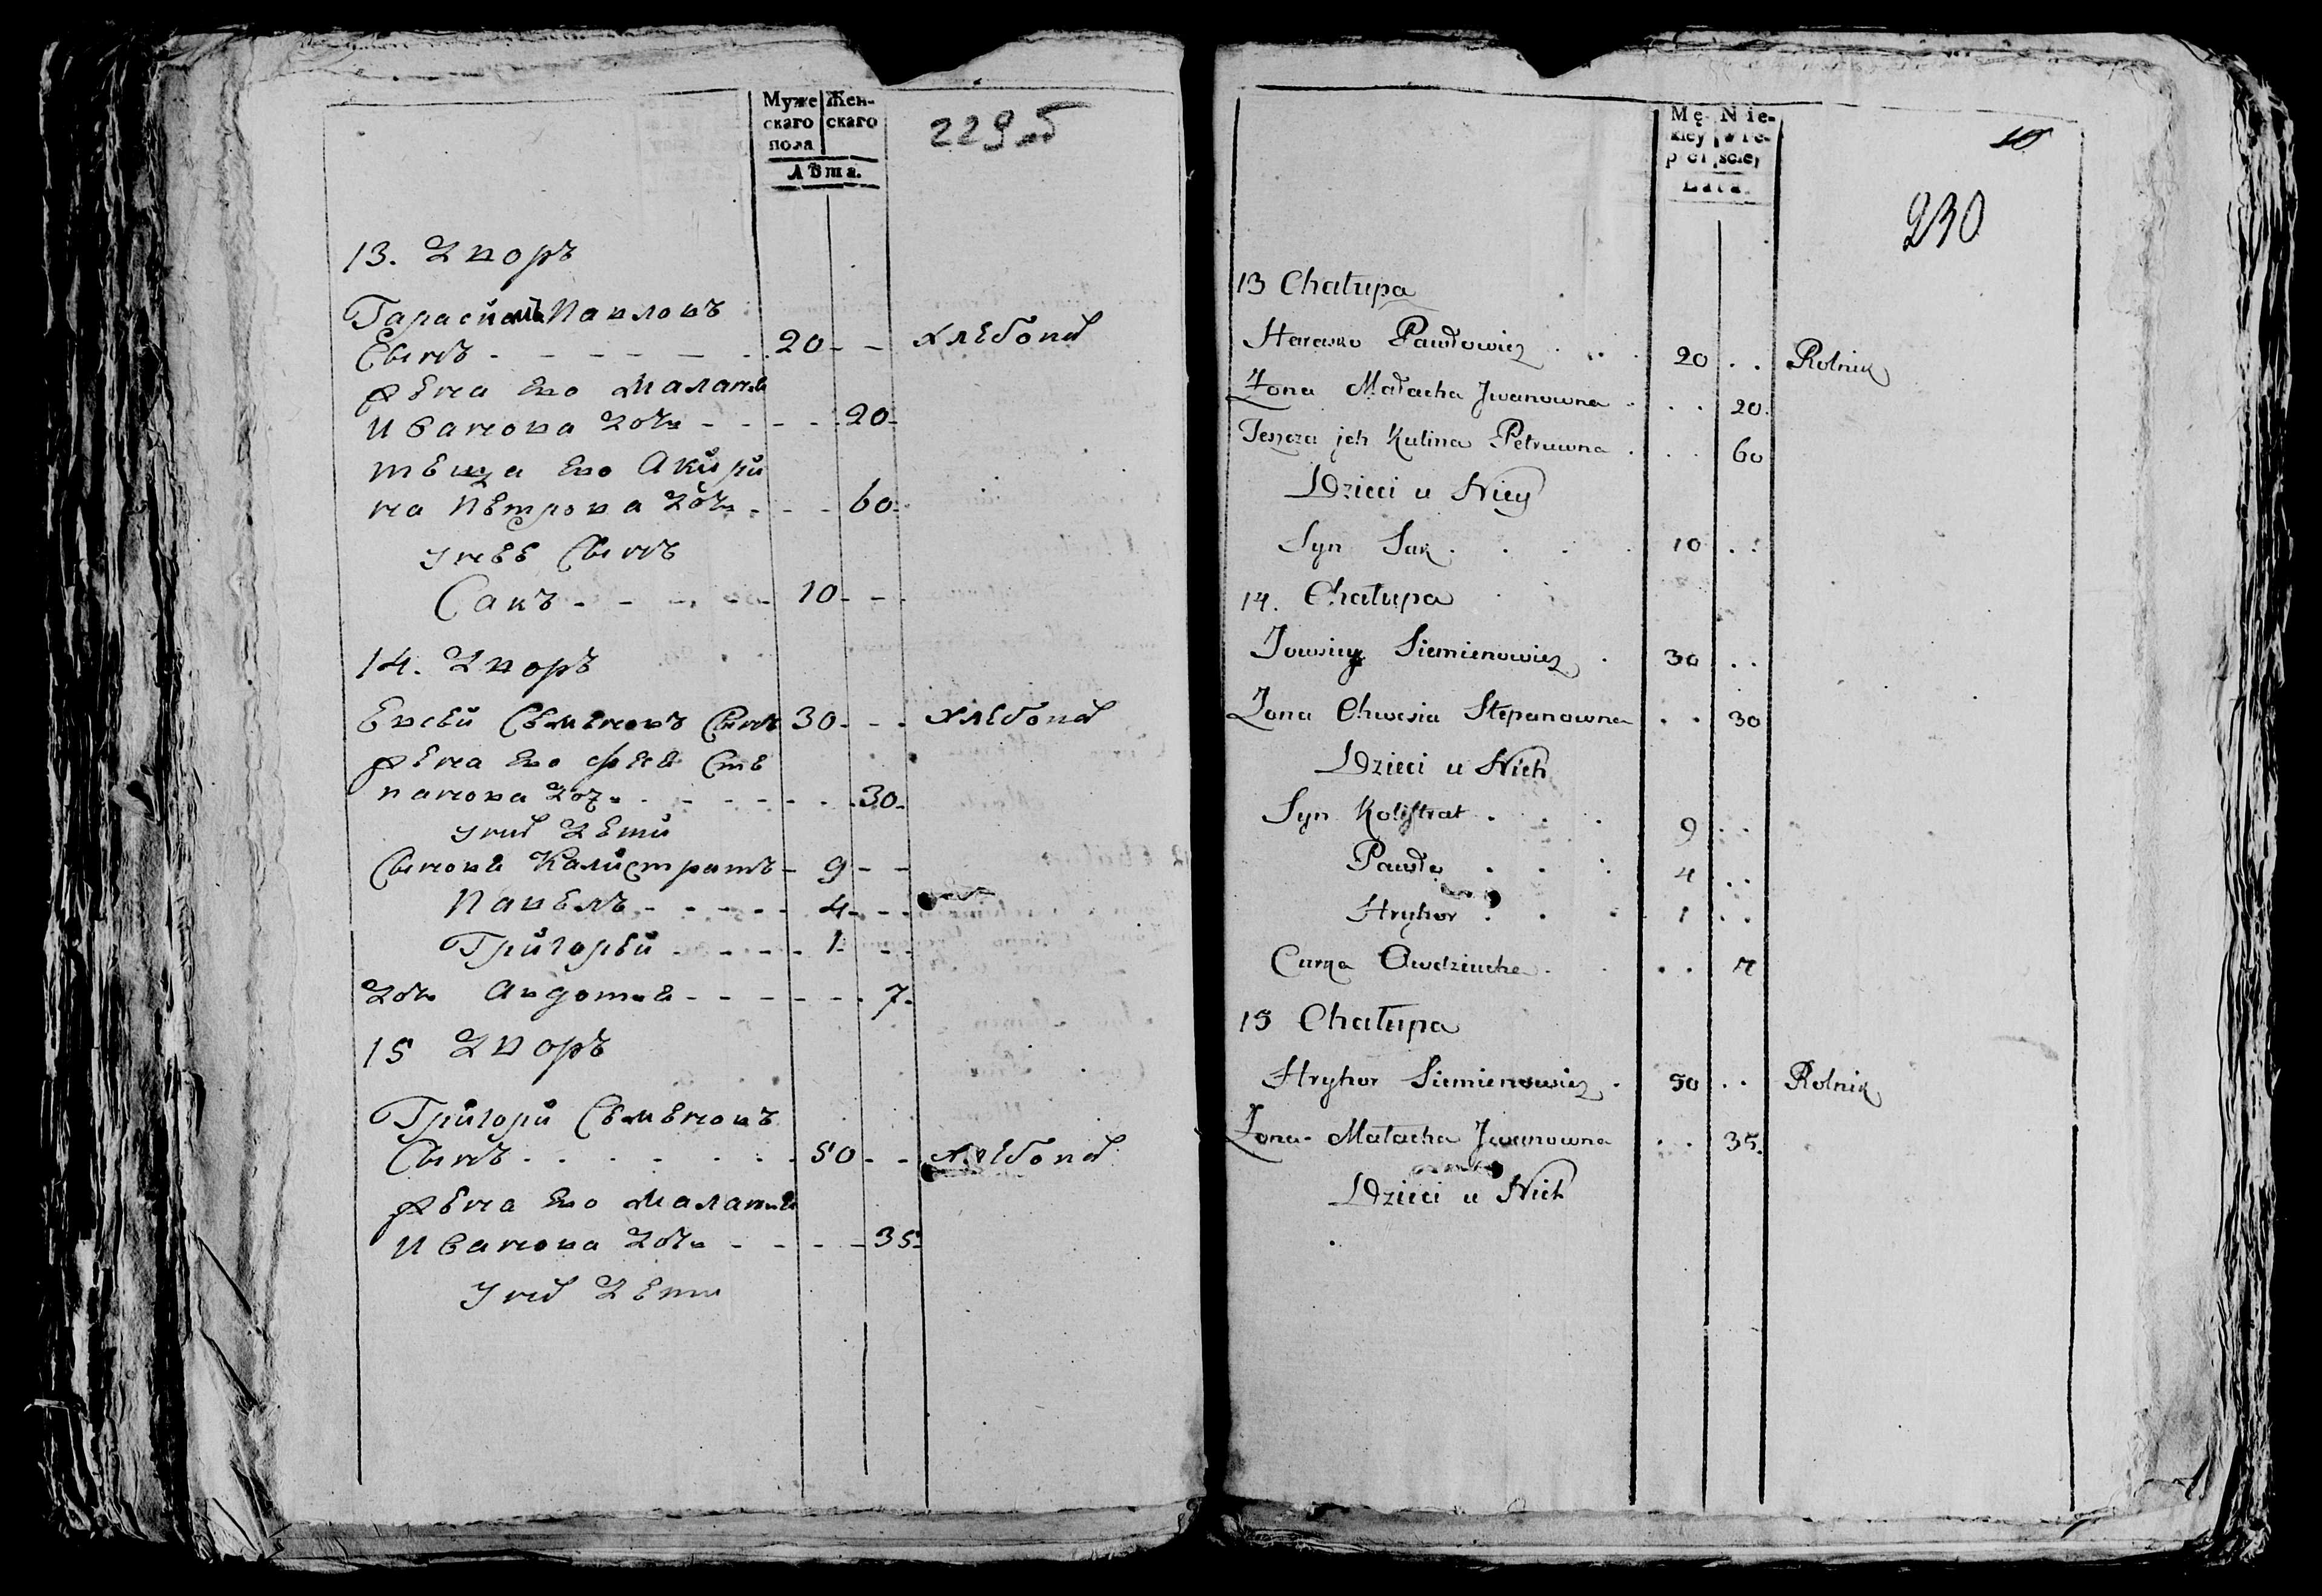 Муже
скаго
пола
Жен-
скаго
Лѣта.
229 об
13. Дворъ
Гарасимъ Павловъ
Сынъ - - - - - - 20 - - хлебопа
жена ево Маланья
Ивановa дочь - - - - 20 -
теща ево Акили
на Петрова дочь - - - 60 -
у нее Сынъ
Сакъ - - - - - 10 - - -
14. Дворъ
Евсей Семеновъ Сынъ 30 - - - хлебопа
жена ево Феся Сте
панова доч - - - - - - 30 -
у них дети
Сыновя Калистратъ - 9 - -
Павелъ - - - - - 4 - - -
Григорей - - - - - 1 - - -
дочь Авдотья - - - - - - 7 -
15 Дворъ
Григори Семеновъ
Сынъ - - - - - - - 50 - - хлебопа
жена ево Маланья
Иванова дочь - - - - 35 -
у них дети
Mę-
kiey
płci
Nie-
wie-
sciey
Lata.
10
230
13 Chałupa
Harasko Pawłowicz . . . 20 . . Rolnik
Żona Małacha Jwanowna . . . 20.
Teszcza jch Kulina Petruwna . . . 60
Dzieci u Niey
Syn Sak . . . . 10 . :
14. Chałupa
Jowsiey Siemienowicz . 30 . .
Żona Chwesia Stepanowna . . 30
Dzieci u Nich
Syn Kolistrat . . . 9 . .
Pawło . . : 4 . .
Hryhor . . . 1 . .
Curka Awdziucha . . . . 7
15 Chałupa
Hryhor Siemienowicz . 50 . . Rolnik
Żona Małacha Jwanowna . . 35.
Dzieci u Nich